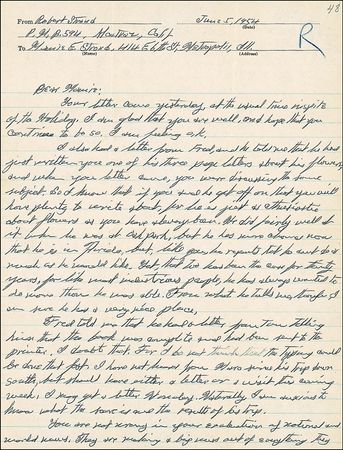 48
From Robert Stroud June 5, 1954
(Date)
P.M.B. 594, Alcatraz, Calif
R
To Mamie E. Stroud, 414 E 6th St. Metropolis, Ill.
(Name) (Address)
Dear Mamie:
Your letter came yesterday, at the usual time in spite
of the Holiday. I am glad that you are well, and hope that you
continue to be so. I am feeling o.k.
I also had a letter from Fred and he told me that he had
just written you one of his three page letters about his flowers
and when your letter came, you were discussing the same
subject. So I know that if you and he get off on that you will
have plenty to write about, for he is just as enthusiastic
about flowers as you have always been. He did fairly well at
it when he was at Oak park, but he has more chances now
that he is in Florida, but, like you, he reports that he can't do as
much as he would like. But, that has been the case for thirty
years, for like most industrious people, he has always wanted to
do more than he was able. From what he tells me, though I
am sure he has a very nice place.
Fred told me that he had a letter from Tom telling
him that the book was and had been sent to the
printer. I doubt that. For I do not think the typing could
be done that fast. I have not heard from since his trip down
south, but should have either a letter or a visit this coming
week. I may get a letter Monday. Naturally I am anxious to
know what the score is and the result of his trip.
You are not wrong in your evaluation of national and
world news. They are making a big news out of everything they